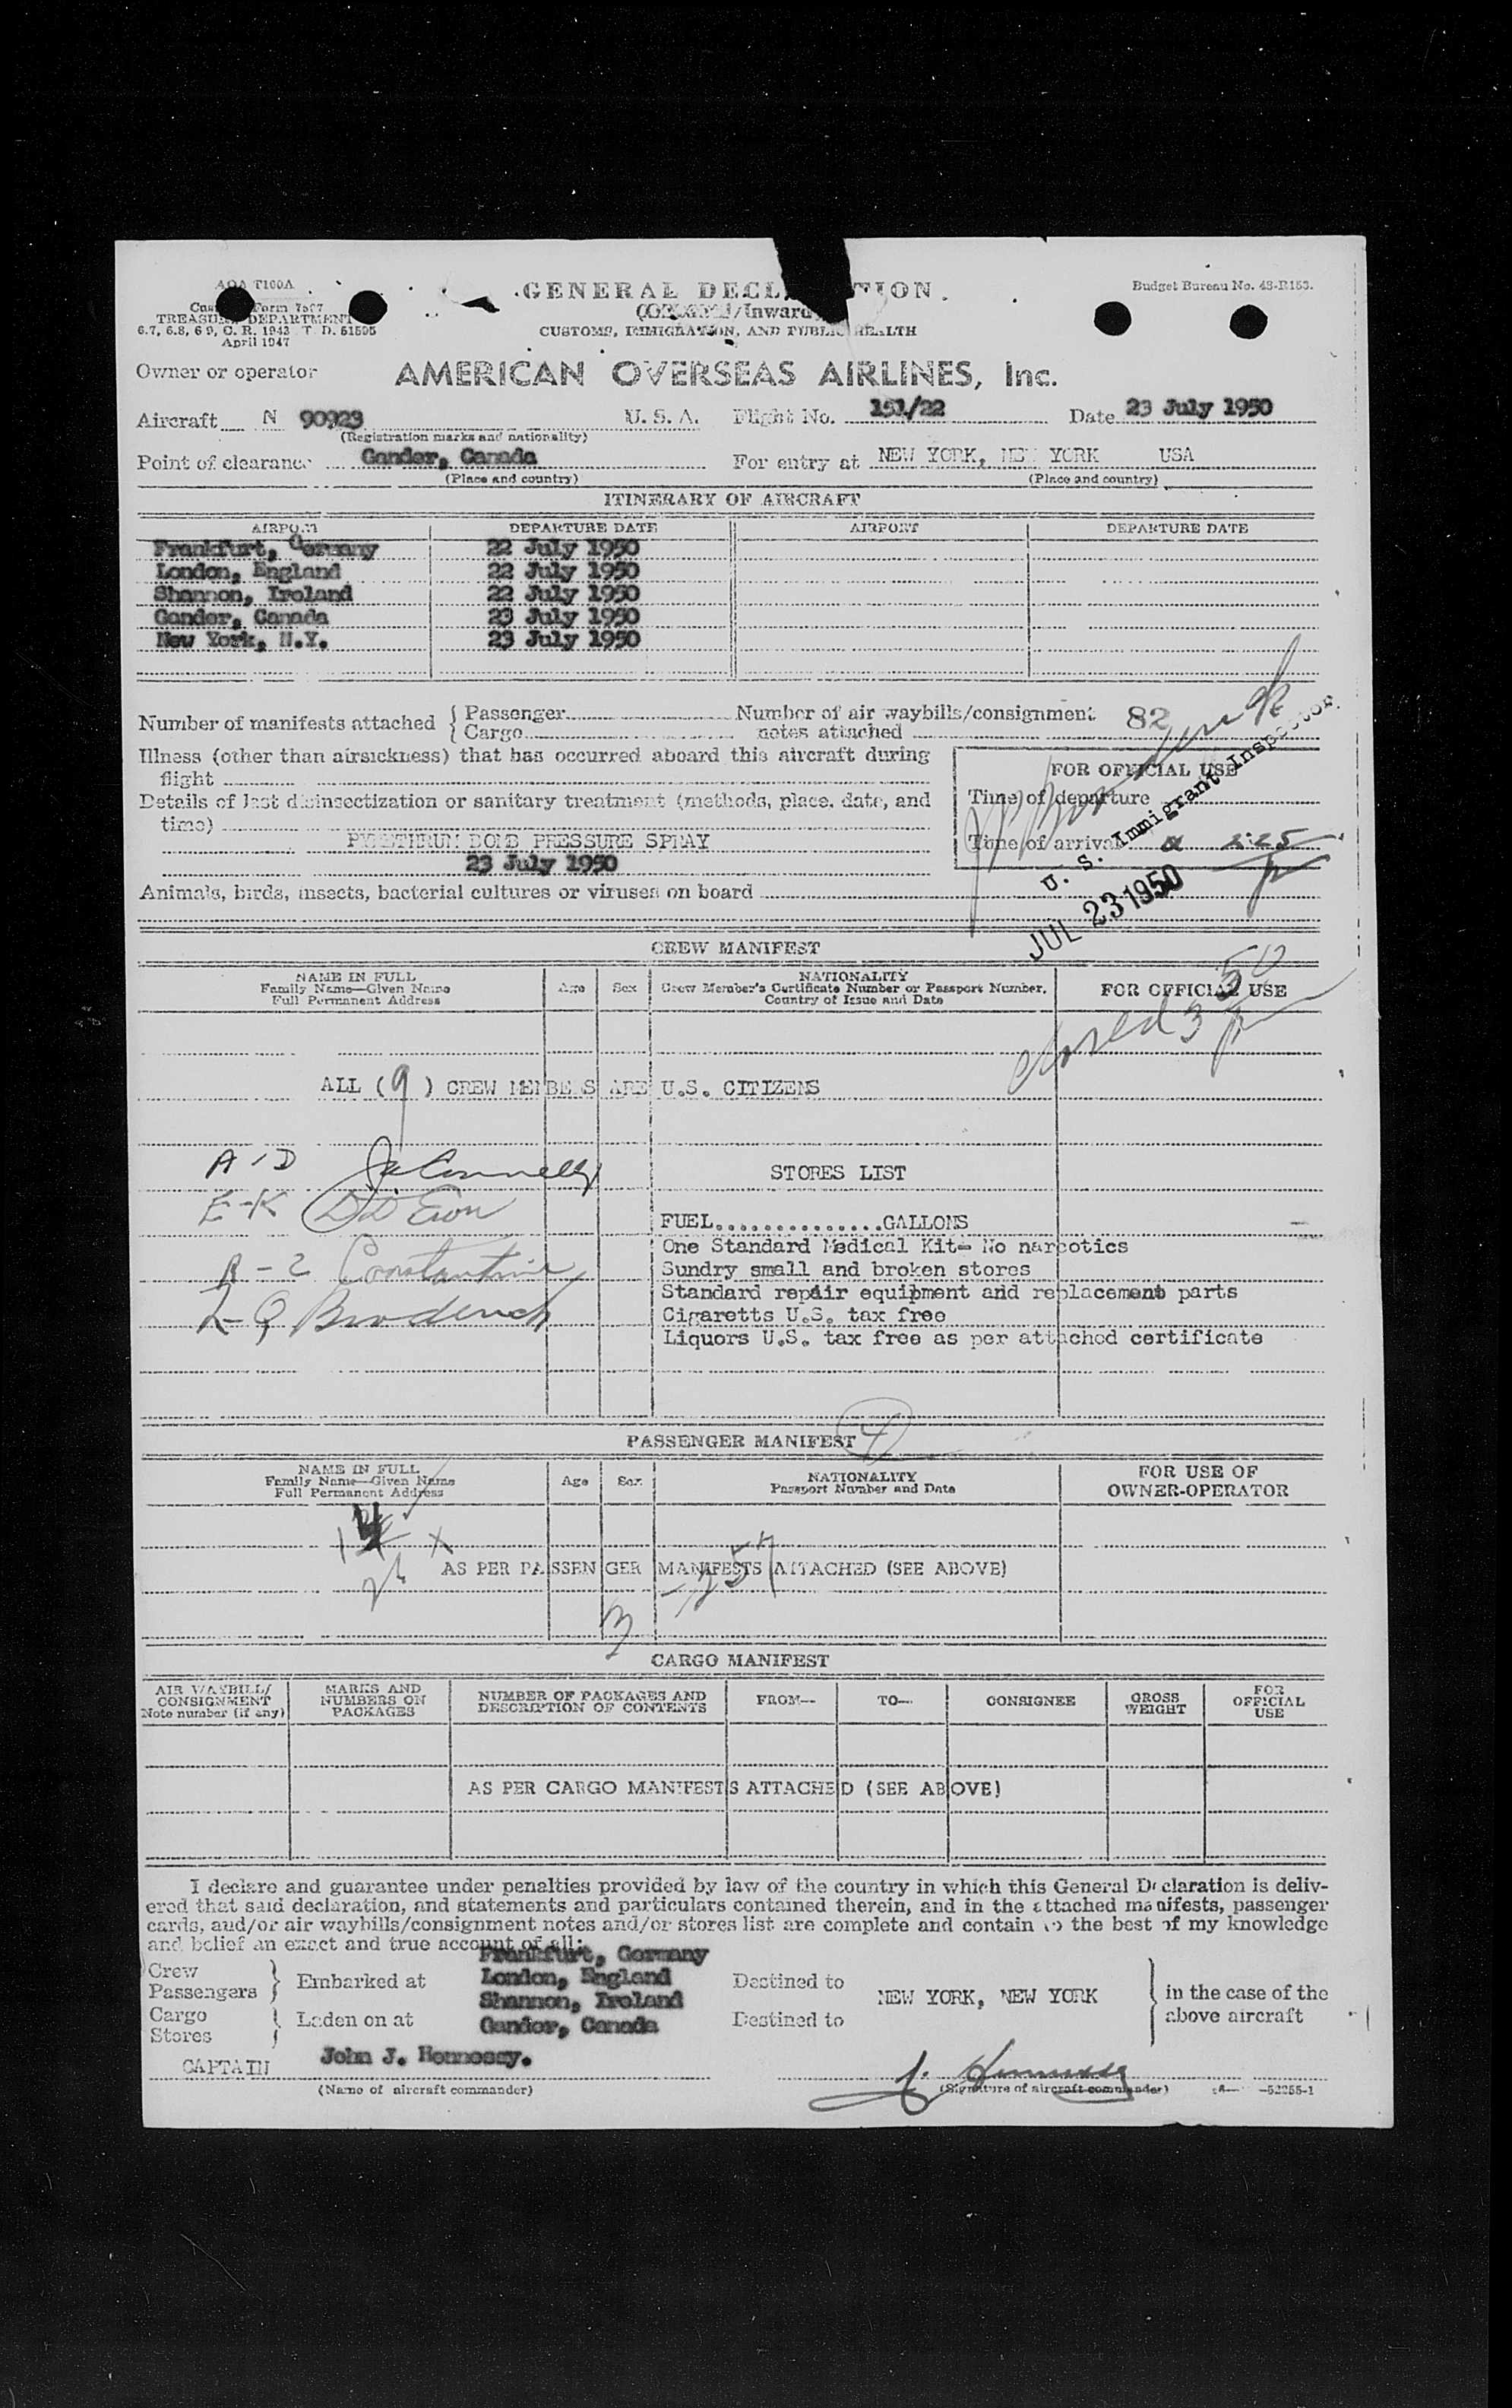 AOA T100A
GENERAL DECL TION
Budget Bureau No. 48-R153.
Form 7507
/Inward
TREASURY DEPARTMENT
CUSTOMS, IMMIGRATION, AND PUBLIC HEALTH
6.7, 6.8, 6 9, C. R. 1943 T. D. 51595
April 1947
Owner or operator AMERICAN OVERSEAS AIRLINES, Inc.
Aircraft N 90923 U. S. A. Flight No. 151/22 Date 23 July 1950
(Registration marks and nationality)
Point of clearance Gander, Canada For entry at NEW YORK, NEW YORK USA
(Place and country) (Place and country)
ITINERARY OF AIRCRAFT
AIRPORT DEPARTURE DATE AIRPORT DEPARTURE DATE
Frankfurt, Germany 22 July 1950
London, England 22 July 1950
Shannon, Ireland 22 July 1950
Gander, Canada 23 July 1950
New York, N.Y. 23 July 1950
Number of manifests attached { Passenger Number of air waybills/consignment 82
Cargo notes attached
Illness (other than airsickness) that has occurred aboard this aircraft during
flight
FOR OFFICIAL USE
Details of last disinsectization or sanitary treatment (methods, place, date, and
time)
Time of departure
PYRETHRUM BOMB PRESSURE SPRAY
Time of arrival a 2:25 p
23 July 1950
U. S. Immigrant Inspector
JUL 23 1950
Animals, birds, insects, bacterial cultures or viruses on board
CREW MANIFEST
NAME IN FULL Age Sex NATIONALITY FOR OFFICIAL USE
Family Name—Given Name Crew Member's Certificate Number or Passport Number,
Full Permanent Address Country of Issue and Date
closed 3 50 p
ALL (9) CREW MEMBERS ARE U.S. CITIZENS
A-D Connelly
STORES LIST
E-K
FUEL..............GALLONS
One Standard Medical Kit- No narcotics
Constantine
Sundry small and broken stores
Standard repair equipment and replacement parts
Broderick
Cigaretts U.S. tax free
Liquors U.S. tax free as per attached certificate
PASSENGER MANIFEST 4
NAME IN FULL Age Sex NATIONALITY FOR USE OF
Family Name—Given Name Passport Number and Date OWNER-OPERATOR
Full Permanent Address
AS PER PASSENGER MANIFESTS ATTACHED (SEE ABOVE)
3
CARGO MANIFEST
AIR WAYBILL/ MARKS AND NUMBER OF PACKAGES AND FROM— TO— CONSIGNEE GROSS FOR
CONSIGNMENT NUMBERS ON DESCRIPTION OF CONTENTS WEIGHT OFFICIAL
Note number (if any) PACKAGES USE
AS PER CARGO MANIFESTS ATTACHED (SEE ABOVE)
I declare and guarantee under penalties provided by law of the country in which this General Declaration is deliv-
ered that said declaration, and statements and particulars contained therein, and in the attached manifests, passenger
cards, and/or air waybills/consignment notes and/or stores list are complete and contain to the best of my knowledge
and belief an exact and true account of all:
Frankfurt, Germany
Crew
Passengers } Embarked at London, England Destined to
Shannon, Ireland NEW YORK, NEW YORK } in the case of the
Cargo
Stores } Laden on at Gander, Canada Destined to above aircraft
CAPTAIN John J. Hennessy. J. Hennessy
(Name of aircraft commander) (Signature of aircraft commander) -52255-1